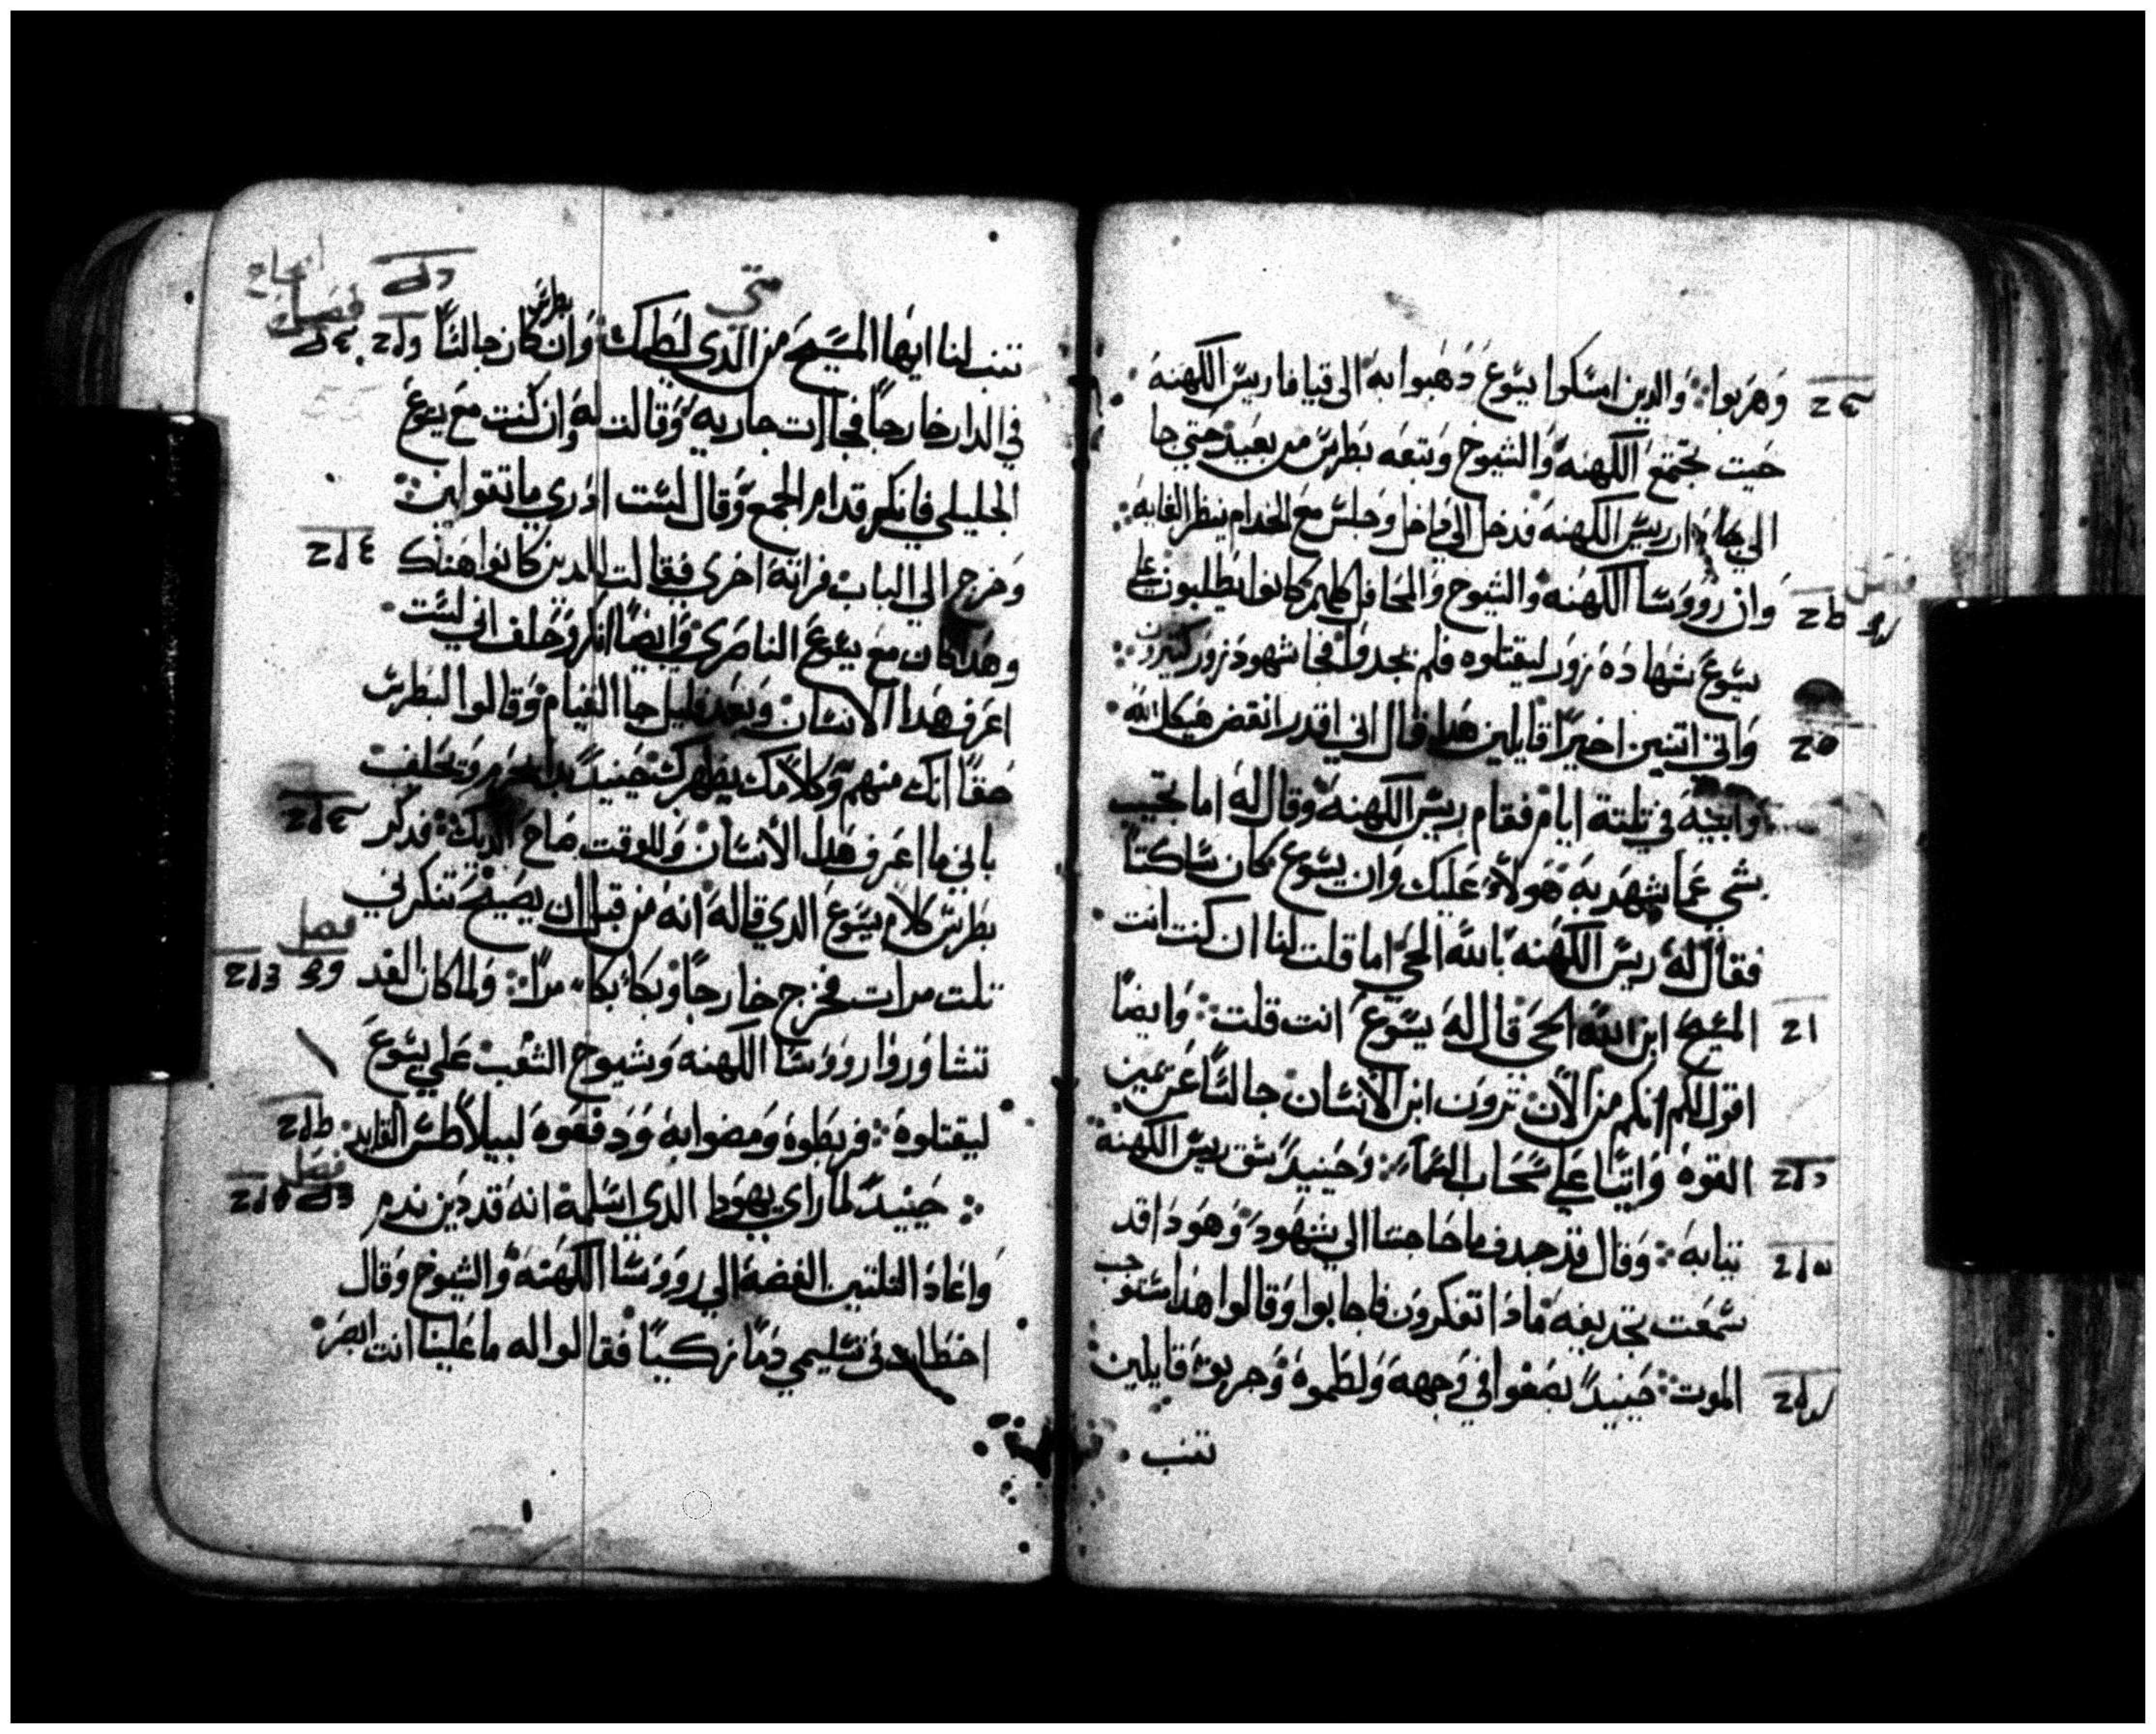 وهربوا والدين امسكوا يسوع دهبوا به الى قيافا ريس الكهنه
حيت تجتمع الكهنه والشيوخ وتبعه بطرس من بعيد حتي جا
الي دار ريس الكهنه فدخل الى داخل وجلس مع الخدام ينظر الغايه
وان رووسا الكهنه والشيوخ والمحافل كلهم كانوا يطلبون علي
يسوع شهاده زور ليقتلوه فلم يجدوا فجا شهود زور كتيرون
واتي اتنين اخيرا قايلين هدا قال اني اقدر انقض هيكل الله
وابنيه في تلتة ايام فقام ريس الكهنه وقال له اما تجيب
بشي عما يشهد به هولاء عليك وان يسوع كان ساكتا
فقال له ريس الكهنه بالله الحي اما قلت لنا ان كنت انت
المسيح ابن الله الحي قال له يسوع انت قلت وايضا
اقول لكم انكم من الان ترون ابن الانسان جالسا عن يمين
القوه واتيا علي سحاب السماء وحينيد شق ريس الكهنه
تيابه وقال قد جدف ما حاجتنا الي شهود وهودا قد
سمعت تجديفه مادا تفكرون فاجابوا وقالوا هدا مستوجب
الموت حينيد بصقوا في وجهه ولطموه وضربوه قايلين
تنب
متي
تنب لنا ايها المسيح من الدي لطمك وان بطرس كان جالسا
في الدار خارجا فجاات جاريه وقالت له وانت كنت مع يسوع
الجليلي فانكر قدام الجمع وقال لست ادري ما تقولين
وخرج الي الباب فراته اخري فقالت للدين كانوا هناك
وهدا كان مع يسوع الناصري وايضا انكر وحلف اني لست
اعرف هدا الانسان وبعد قليل جا القيام وقالوا لبطرس
حقا انك منهم وكلامك يظهرك حينيد بدا يحرم ويحلف
باني ما اعرف هدا الانسان وللوقت صاح الديك فدكر
بطرس كلام يسوع الدي قاله انه من قبل ان يصيح تنكرني
تلت مرات فخرج خارجا وبكا بكاء مرا ولما كان الغد
تشاوروا رووسا الكهنه وشيوخ الشعب علي يسوع
ليقتلوه فربطوه ومضوا به ودفعوه لبيلاطس القايد
حينيد لما راي يهودا الدي اسلمه انه قد دين ندم
واعاد التلتين الفضه الي رووسا الكهنه والشيوخ وقال
اخطات في تسليمي دما زكيا فقالوا له ما علينا انت ابصر